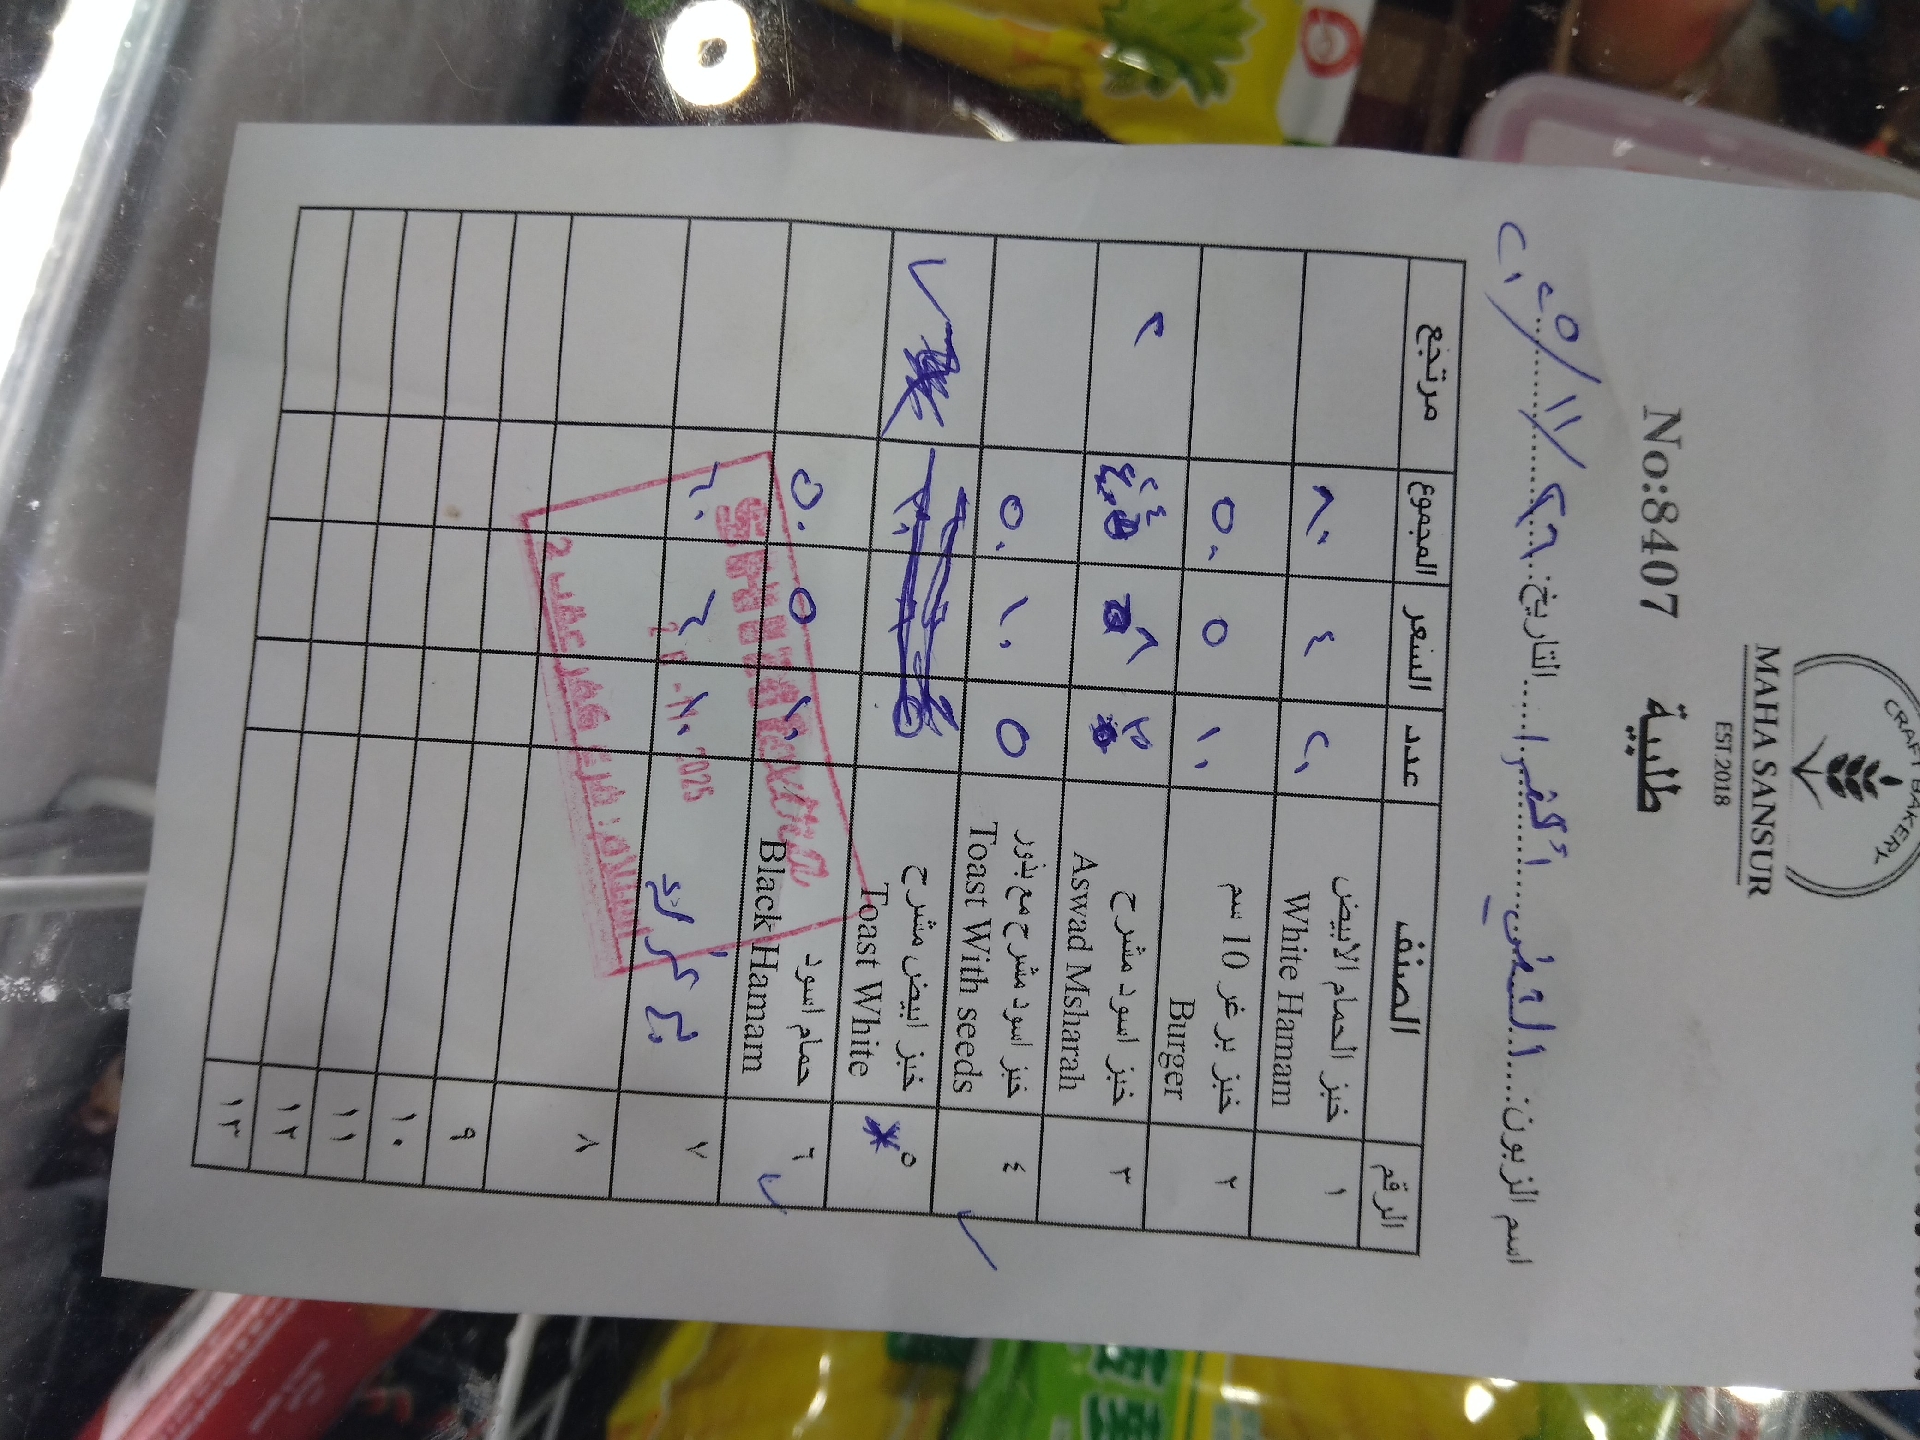 CRAFT BAKERY
MAHA SANSUR
EST 2018
No:8407 طلبية
اسم الزبون: التاريخ: ٢٦/١١/٢٠٢٥
الرقم الصنف عدد السعر المجموع مرتجع
١ خبز الحمام الابيض White Hamam ٢٠ ٤ ٨٠
٢ خبز برغر 10 سم Burger ١٠ ٥ ٥٠
٣ خبز اسود مشرح Aswad Msharah ٣ ٨ ٢٤ ٢
٤ خبز اسود مشرح مع بذور Toast With seeds ٥ ١٠ ٥٠
٥ خبز ابيض مشرح Toast White
٦ حمام اسود Black Hamam ١٠ ٥ ٥٠
٧ ١٠ ٦ ٦٠
٨
٩
١٠
١١
١٢
١٣
2025